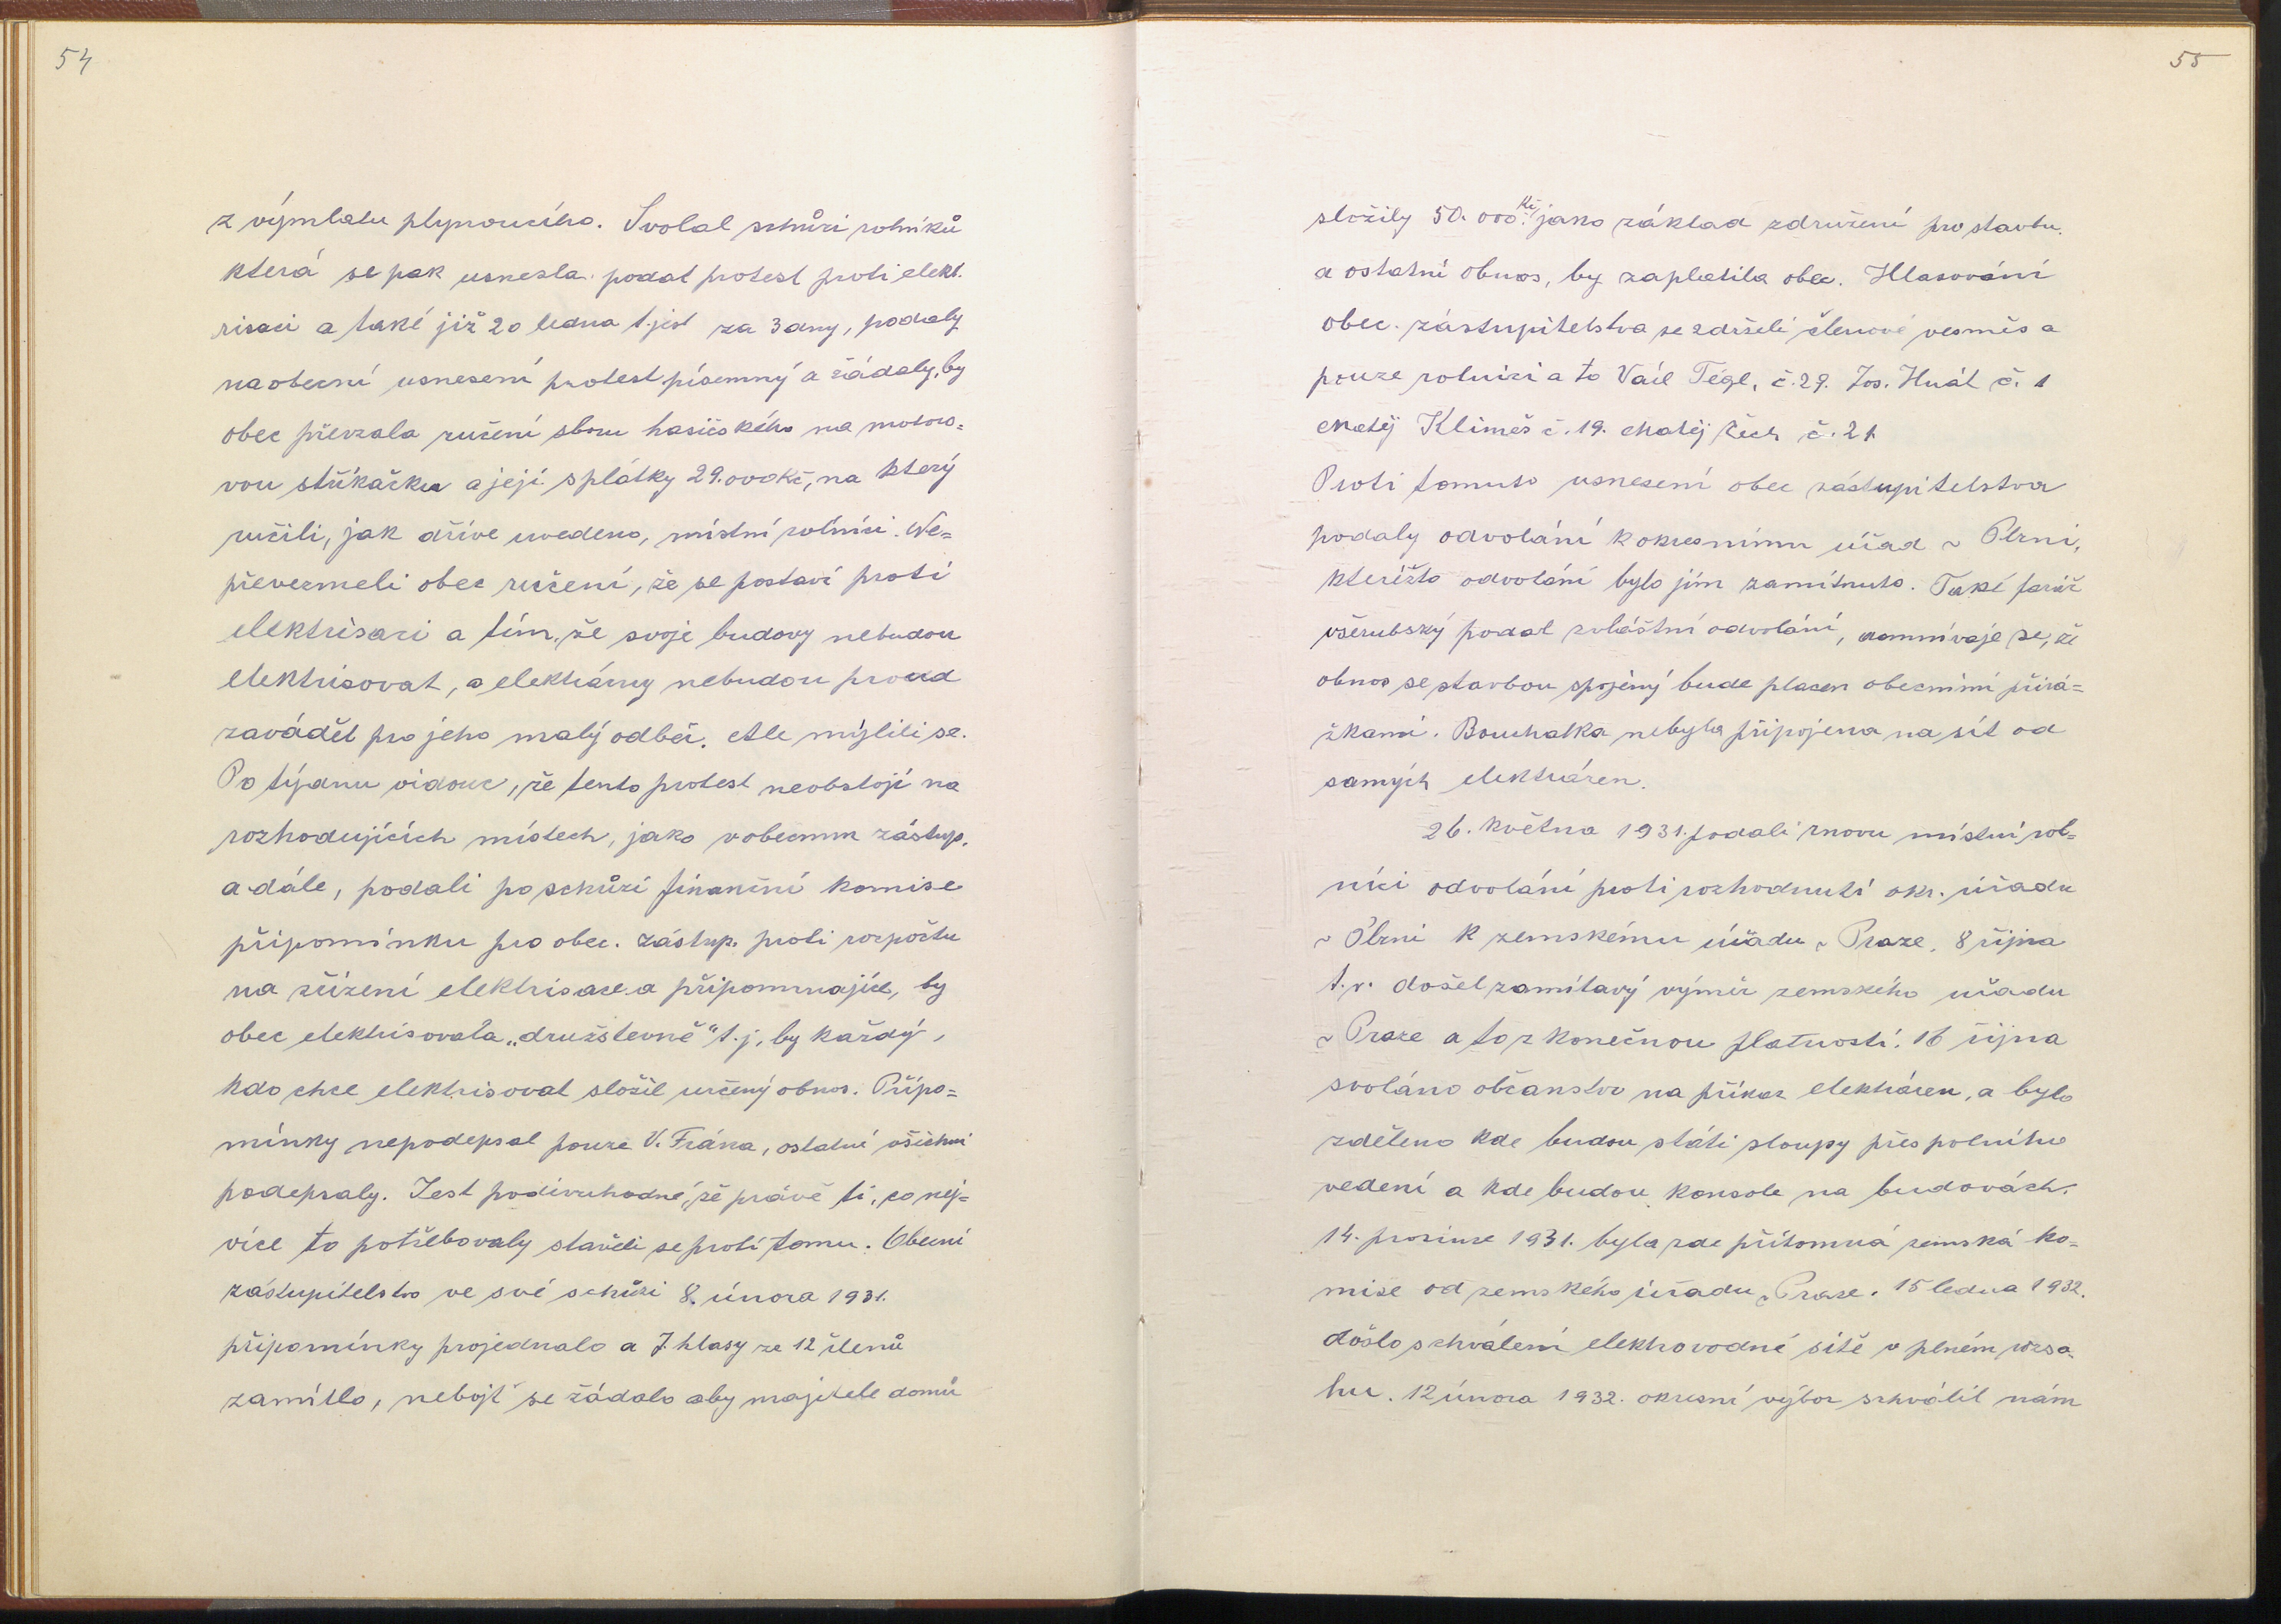 54
z výmlatu plynoucího. Svolal schůzi rolníků
která se pak usnesla podat protest proti elekt.
risaci a také již 20 ledna t.jest za 3 dny, podaly
na obecní usnesení protest písemný a žádaly, by
obec převzala ručení sboru hasičského na motoro=
vou stříkačku a její splátky 29.000 Kč, na který
ručili, jak dříve uvedeno, místní rolníci. Ne=
převezmeli obec ručení, že se postaví proti
elektrisaci a tím, že svoje budovy nebudou
elektrisovat, a elektrárny nebudou proud
zavádět pro jeho malý odběr. Ale mýlili se.
Po týdnu vidouc, že tento protest neobstojí na
rozhodujících místech, jako v obecnm zástup.
a dále, podali po schůzi finanční komise
připomínku pro obec. zástup. proti rozpočtu
na zřízení elektrisace a připomnajíce, by
obec elektrisovala „družstevně" t.j. by každý,
kdo chce elektrisovat složil určený obnos. Přípo=
mínky nepodepsal pouze V. Frána, ostatní všichni
podepsaly. Jest podivuhodné, že právě ti, co nej=
více to potřebovaly stavěli se proti tomu. Obecní
zástupitelstvo ve své schůzi 8. února 1931.
připomínky projednalo a 7. hlasy ze 12 členů
zamítlo, nebojť se žádalo aby majitele domů
55
složily 50.000 Kč jako základ združení pro stavbu.
a ostatní obnos, by zaplatila obec. Hlasování
obec. zástupitelstva se zdrželi členové vesměs a
pouze rolnici a to Václ Tégl, č.29. Jos. Hnát č. 1
Matěj Klimeš č. 19. Matěj Čech č. 21
Proti tomuto usnesení obec zástupitelstva
podaly odvolání k okresnímu úřad v Plzni,
kteréžto odvolání bylo jim zamítnuto. Také farář
všerubský podal zvláštní odvolání, domnívaje se, že
obnos se stavbou spojený bude placen obecními přirá=
žkami. Bouchalka nebyla připojena na sít od
samých elektráren.
26. května 1931. podali znovu místní rol=
níci odvolání proti rozhodnutí okr. úřadu
v Plzni k zemskému úřadu v Praze. 8 října
t.r. došel zamítavý výměr zemského úřadu
v Praze a to z konečnou platností. 16 října
svoláno občanstvo na příkaz elektráren, a bylo
zděleno kde budou státi sloupy přespolního
vedení a kde budou konsole na budovách.
14. prosince 1931. byla zde přítomná zemská ko=
mise od zemského úřadu v Praze. 15 ledna 1932.
došlo schválení elektrovodné sítě v plném rozsa=
hu. 12 února 1932. okresní výbor schválil nám